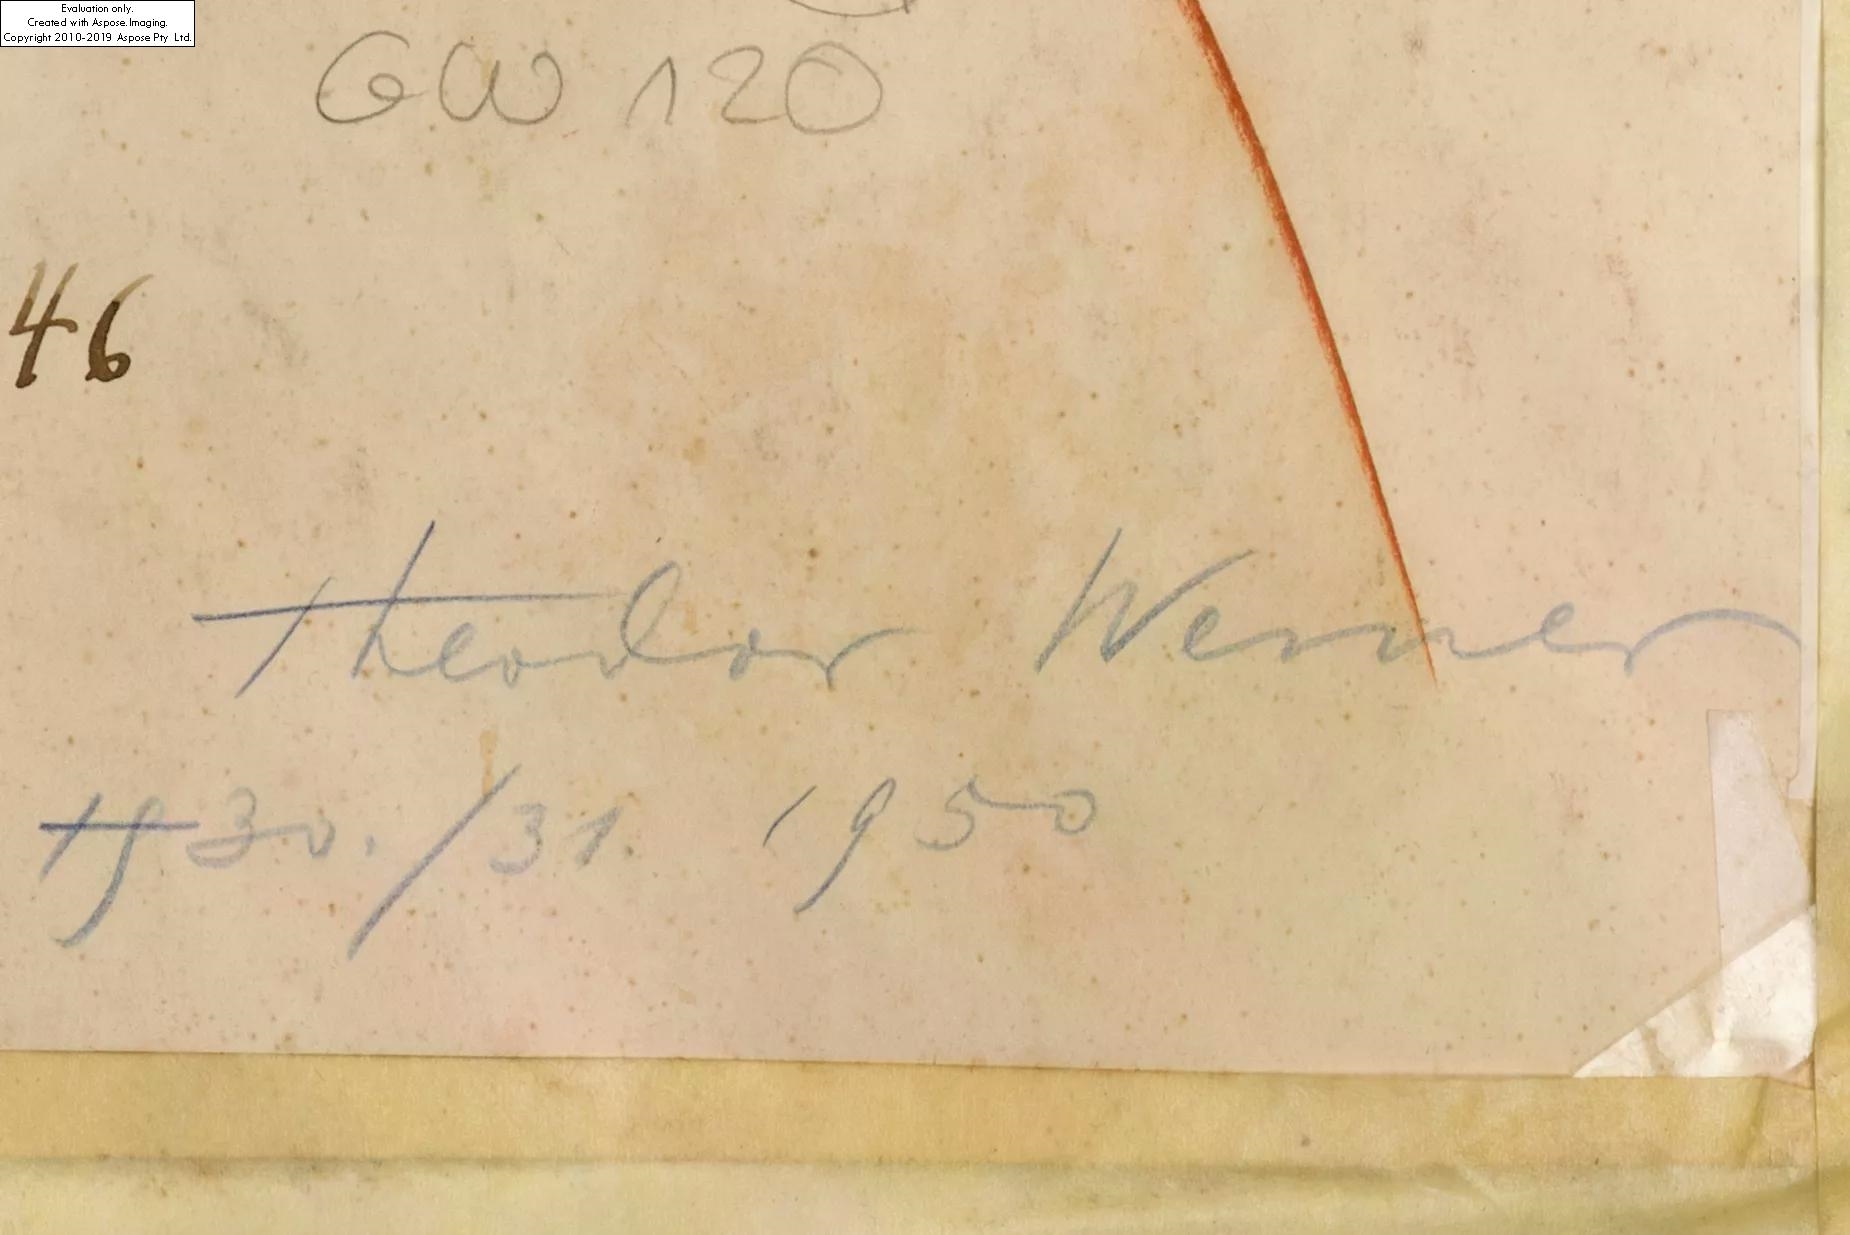 Evaluation only.
Created with Aspose.Imaging.
Copyright 2010-2019 Aspose Pty Ltd.
GW 120
46
Theodor Werner
1930./31. 1950